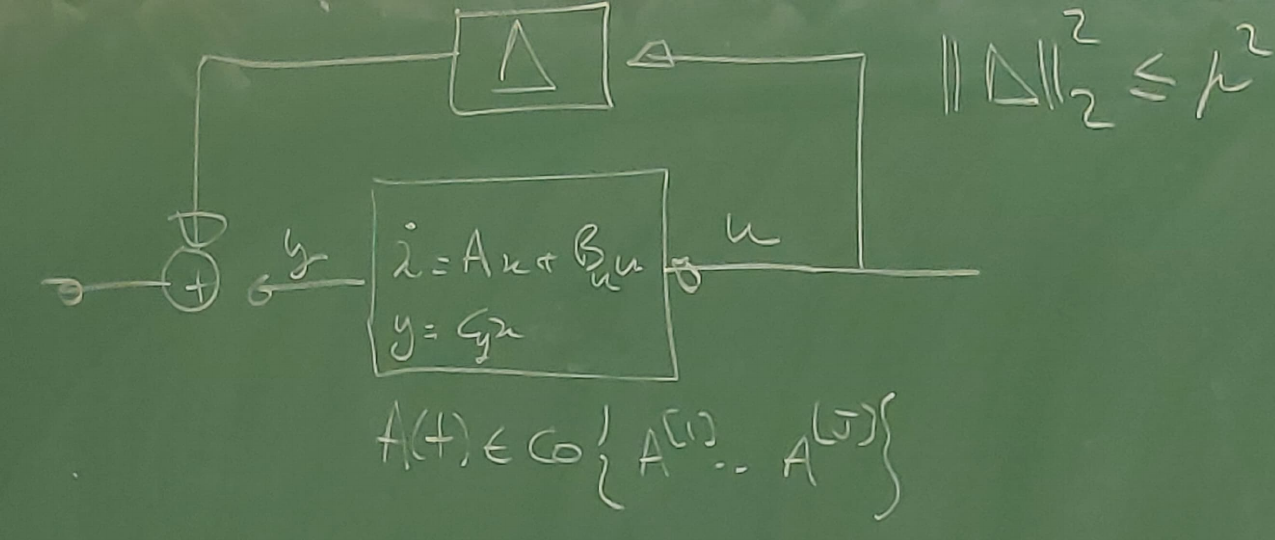 Δ
‖Δ‖₂² ≤ μ²
y
u
ẋ = Ax + Bᵤu
y = C_y x
+
A(t) ∈ Co{A^[1] .. A^[J]}